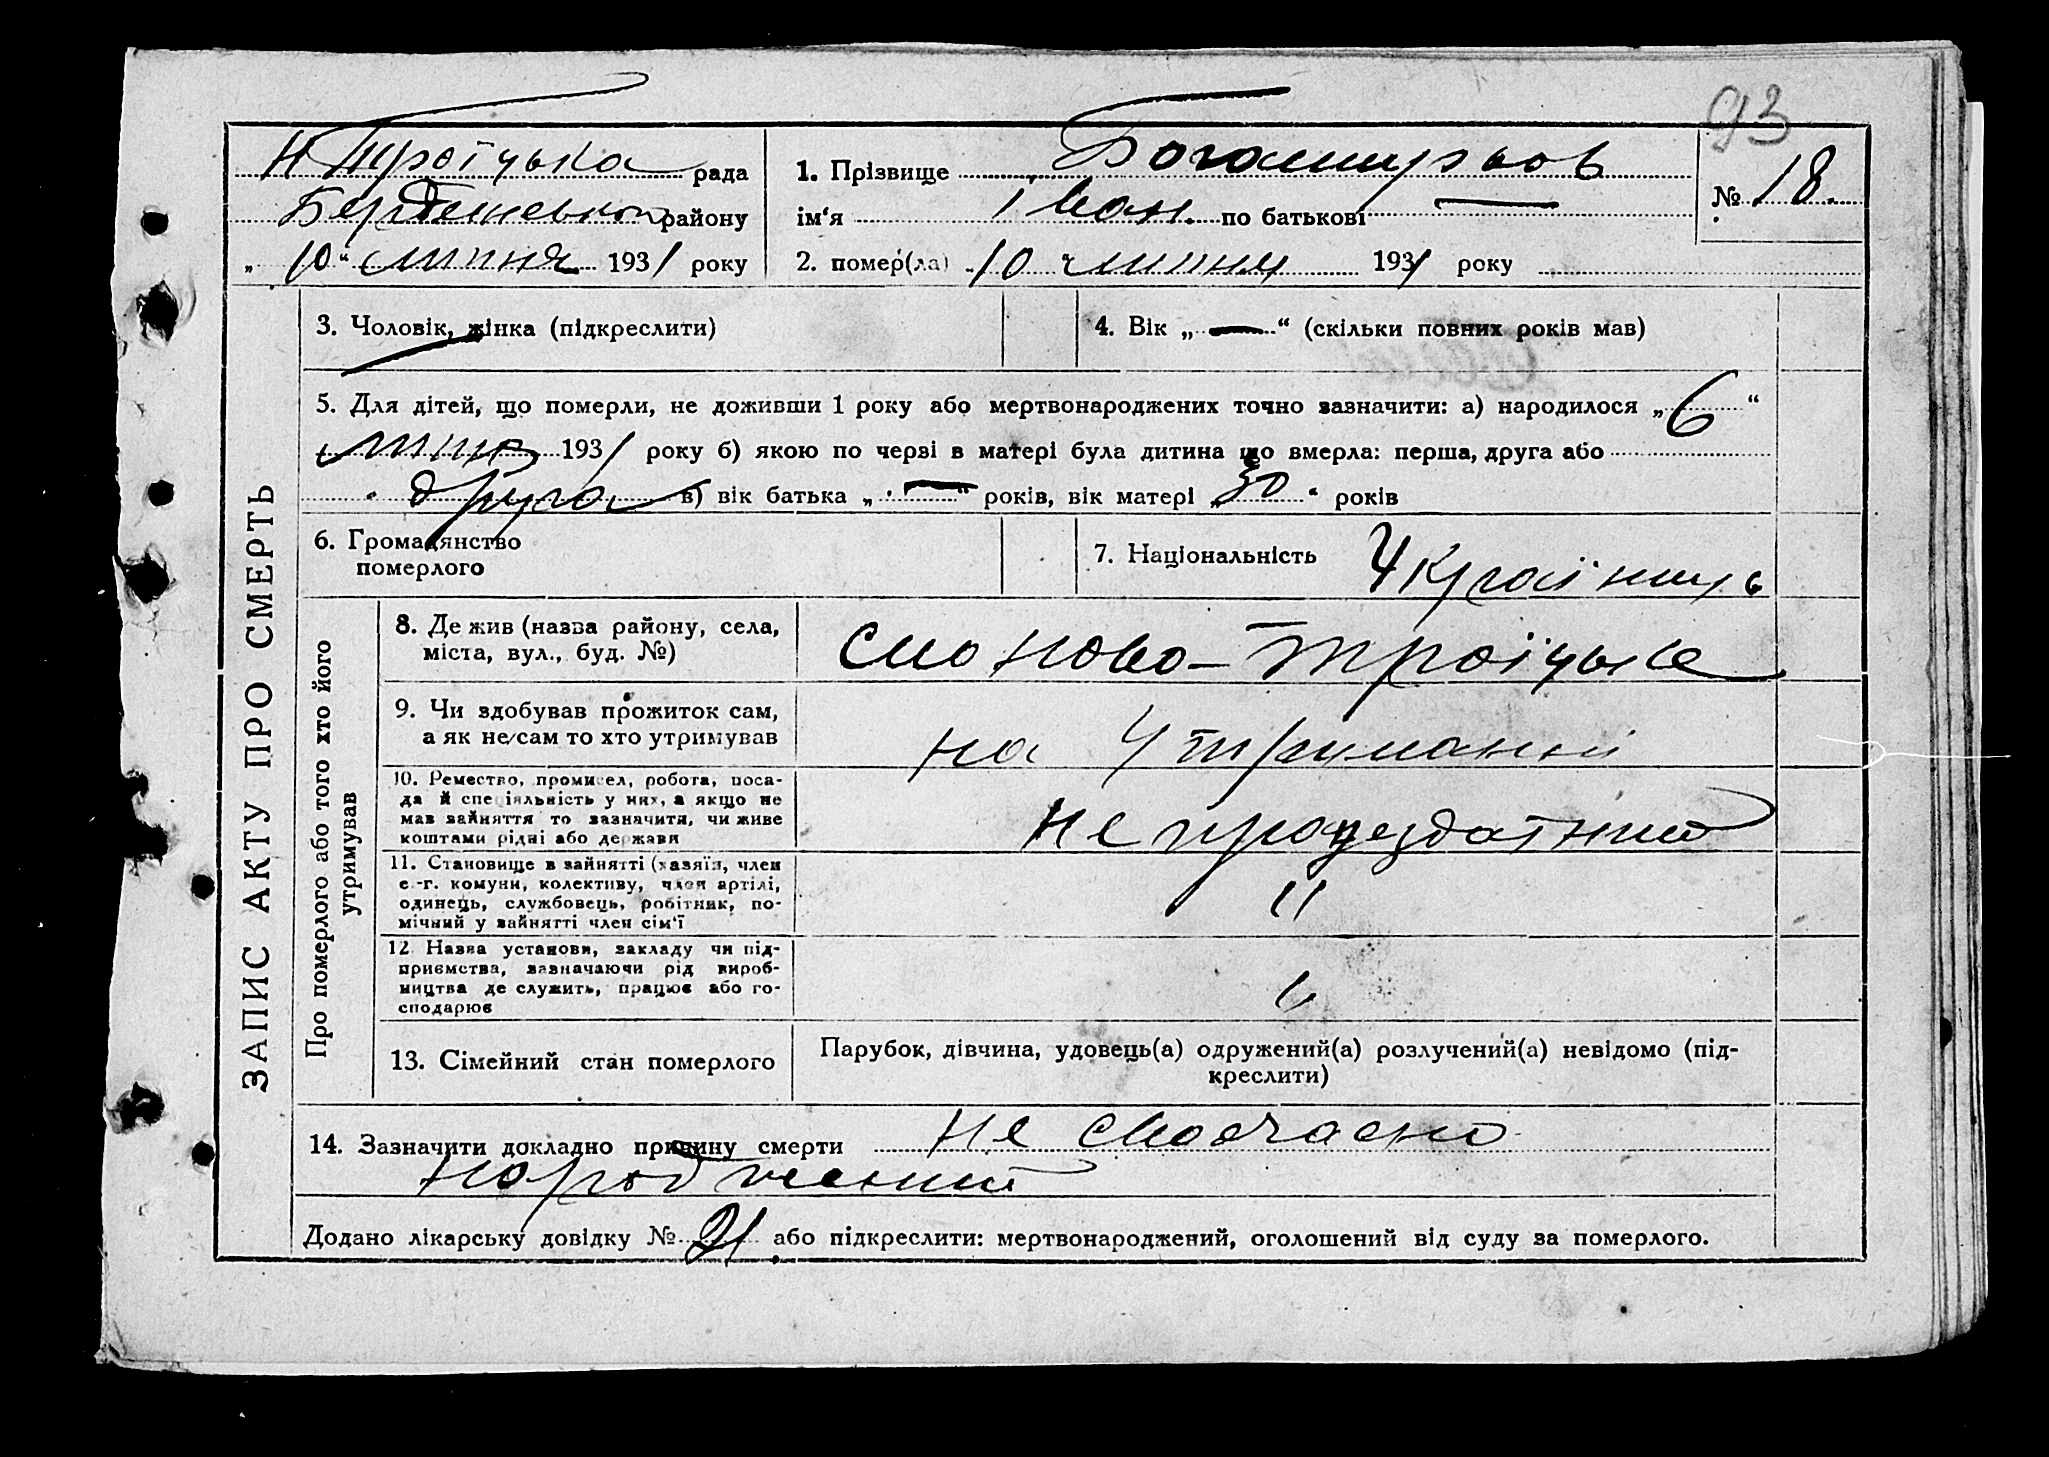 93
Н Троїцька рада
району
„ 10 “ липня 1931 року
1. Прізвище
ім‘я Іван. по батькові —
№ 18.
2. помер(ла) 10 липня 1931 року
ЗАПИС АКТУ ПРО СМЕРТЬ
3. Чоловік, жінка (підкреслити)
4. Вік „ — “ (скільки повних років мав)
5. Для дітей, що померли, не доживши 1 року або мертвонароджених точно зазначити: а) народилося „ 6 “
липня 1931 року б) якою по черві в матері була дитина що вмерла: перша, друга або
друга в) вік батька „ — “ років, вік матері „ 30 “ років
6. Громадянство
померлого
7. Національність Українець
Про померлого або того хто його
утримував
8. Де жив (назва району, села,
міста, вул., буд. №)
Ново-Троїцьке
9. Чи здобував прожиток сам,
а як не сам то хто утримував
на утриманні
10. Ремество, промисел, робота, поса-
да й спеціяльність у них, а якщо не
мав зайняття то зазначити, чи живе
коштами рідні або держави
не працездатний
11. Становище в зайнятті (хазяїн, член
с.-г. комуни, колективу, член артілі,
одинець, службовець, робітник, по-
мічний у зайнятті член сім‘ї
"
12. Назва установи, закладу чи під-
приємства, зазначаючи рід вироб-
ництва де служить, працює або го-
сподарює
"
13. Сімейний стан померлого
Парубок, дівчина, удовець(а) одружений(а) розлучений(а) невідомо (під-
креслити)
14. Зазначити докладно причину смерти не своєчасно
народжений
Додано лікарську довідку № 21 або підкреслити: мертвонароджений, оголошений від суду за померлого.